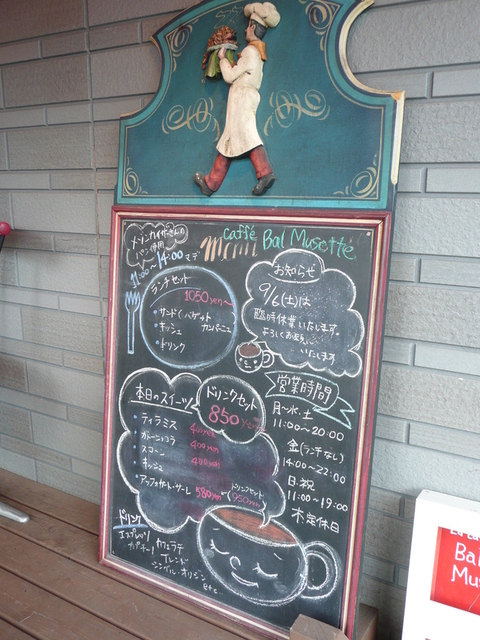 caffé Bal Musette
menu
メゾンカイザーさんの
パン使用
11:00〜14:00マデ
ランチセット
1050yen〜
・サンド(バゲット
カンパーニュ
・キッシュ
・ドリンク
お知らせ
9/6(土)は
臨時休業いたします。
よろしくお願い
いたします
本日のスイーツ
ドリンクセット
850yen
・ティラミス
・ガトーショコラ 400yen
・スコーン 400yen
・キッシュ
580yen
ドリンクセット
950yen
営業時間
月〜水、土
11:00〜20:00
金(ランチなし)
14:00〜22:00
日・祝
11:00〜19:00
木定休日
ドリンク
エスプレッソ
カプチーノ
カフェラテ
ブレンド
シングル・オリジン
etc
Bal
Mus